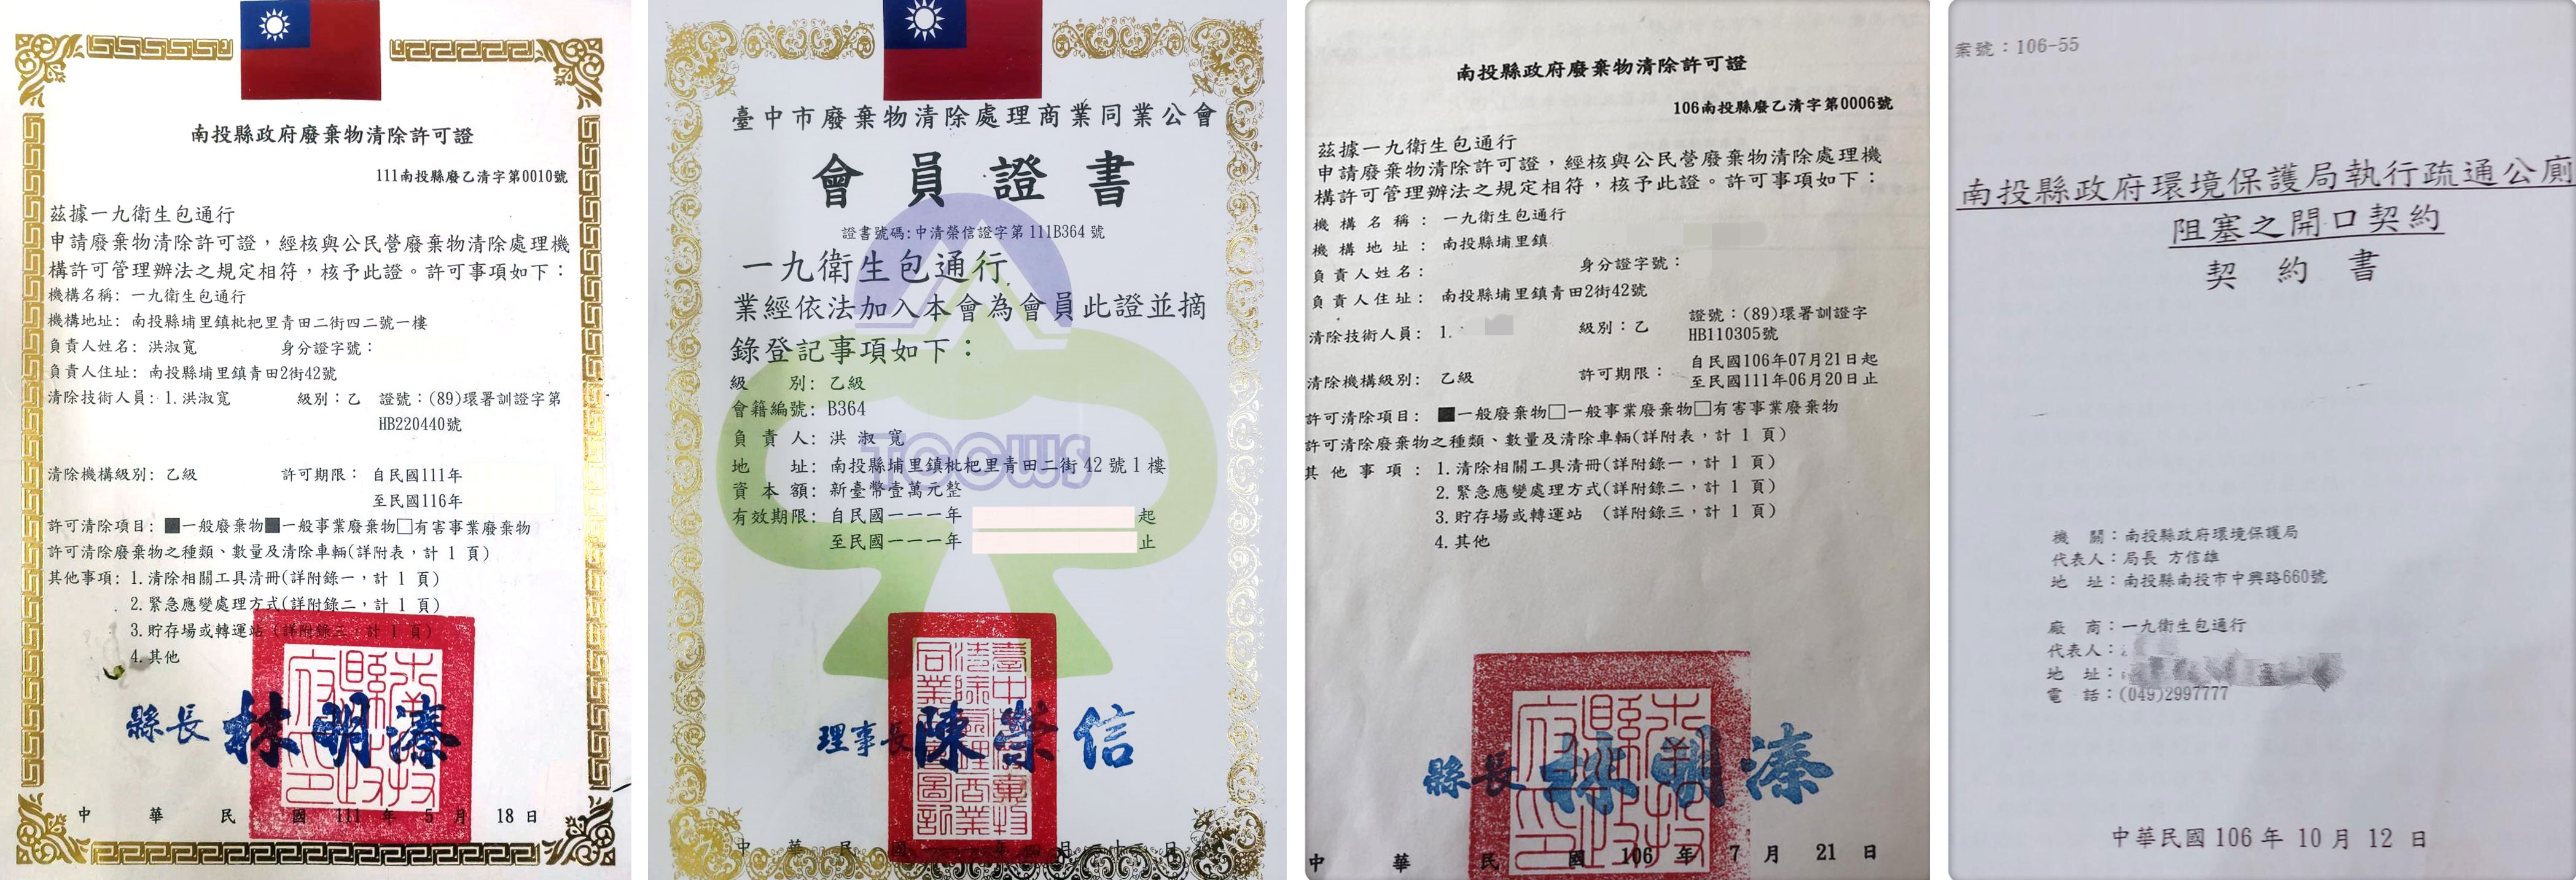 南投縣政府廢棄物清除許可證
111南投縣廢乙清字第0010號
茲據一九衛生包通行
申請廢棄物清除許可證，經核與公民營廢棄物清除處理機
構許可管理辦法之規定相符，核予此證。許可事項如下：
機構名稱: 一九衛生包通行
機構地址: 南投縣埔里鎮枇杷里青田二街四二號一樓
負責人姓名: 洪淑寬 身分證字號:
負責人住址: 南投縣埔里鎮青田2街42號
清除技術人員: 1.洪淑寬 級別：乙 證號：(89)環署訓證字第
HB220440號
清除機構級別: 乙級 許可期限： 自民國111年
至民國116年
許可清除項目: ■一般廢棄物■一般事業廢棄物□有害事業廢棄物
許可清除廢棄物之種類、數量及清除車輛(詳附表，計 1 頁)
其他事項: 1.清除相關工具清冊(詳附錄一，計 1 頁)
2.緊急應變處理方式(詳附錄二，計 1 頁)
3.貯存場或轉運站 (詳附錄三，計 1 頁)
4.其他
縣長 林明溱
中 華 民 國 111 年 5 月 18 日
臺中市廢棄物清除處理商業同業公會
會員證書
證書號碼:中清榮信證字第 111B364 號
一九衛生包通行
業經依法加入本會為會員此證並摘
錄登記事項如下：
級 別: 乙級
會籍編號: B364
負責人: 洪淑寬
TCCWS
地 址: 南投縣埔里鎮枇杷里青田二街 42 號 1 樓
資本額: 新臺幣壹萬元整
有效期限: 自民國一一一年 起
至民國一一一年 止
理事長 陳榮信
南投縣政府廢棄物清除許可證
106南投縣廢乙清字第0006號
茲據一九衛生包通行
申請廢棄物清除許可證，經核與公民營廢棄物清除處理機
構許可管理辦法之規定相符，核予此證。許可事項如下：
機構名稱: 一九衛生包通行
機構地址: 南投縣埔里鎮
負責人姓名: 身分證字號:
負責人住址: 南投縣埔里鎮青田2街42號
清除技術人員: 1. 級別：乙 證號：(89)環署訓證字
HB110305號
清除機構級別: 乙級 許可期限： 自民國106年07月21日起
至民國111年06月20日止
許可清除項目: ■一般廢棄物□一般事業廢棄物□有害事業廢棄物
許可清除廢棄物之種類、數量及清除車輛(詳附表，計 1 頁)
其他事項: 1.清除相關工具清冊(詳附錄一，計 1 頁)
2.緊急應變處理方式(詳附錄二，計 1 頁)
3.貯存場或轉運站 (詳附錄三，計 1 頁)
4.其他
縣長 林明溱
中 華 民 國 106 年 7 月 21 日
案號：106-55
南投縣政府環境保護局執行疏通公廁
阻塞之開口契約
契約書
機 關：南投縣政府環境保護局
代表人：局長 方信雄
地 址：南投縣南投市中興路660號
廠 商：一九衛生包通行
代表人：
地 址：
電 話：(049)2997777
中華民國 106 年 10 月 12 日